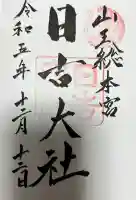 山王総本宮
日吉大社
令和五年十二月十二日